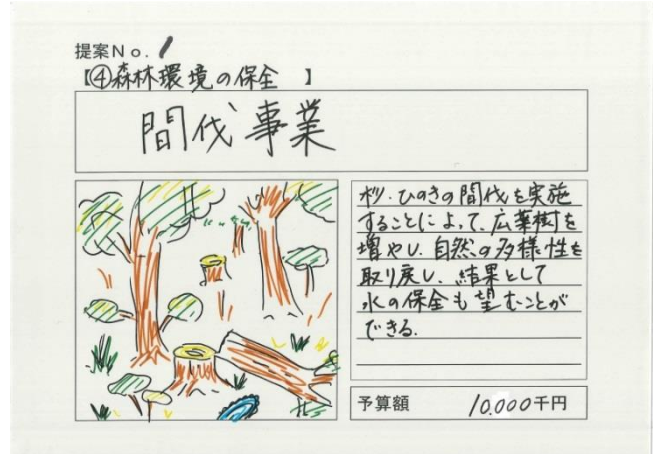 提案No.1
【④森林環境の保全 】
間伐事業
杉・ひのきの間伐を実施
することによって、広葉樹を
増やし、自然の多様性を
取り戻し、結果として
水の保全も望むことが
できる。
予算額 10,000千円